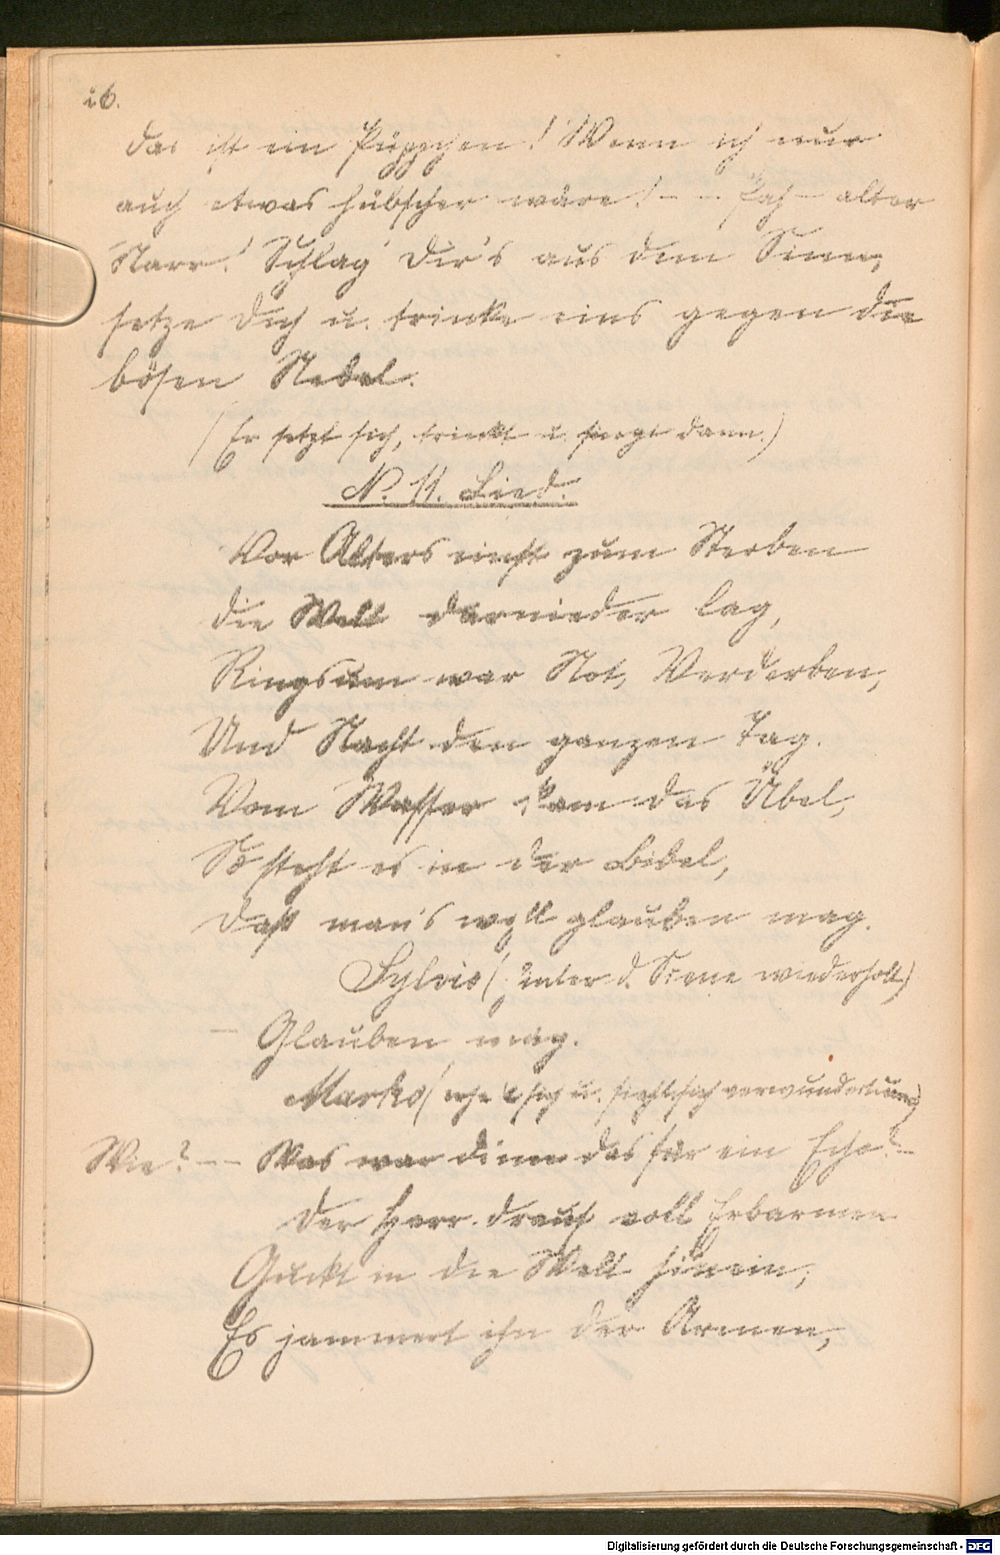 26.
das ist ein Püppchen! Wenn ich nur
auch etwas hübscher wäre! - - Pah - alter
Narr! Schlag' Dir's aus dem Sinn,
setze Dich u. trinke eins gegen die
bösen Nebel.
(Er setzt sich, trinkt u. singt dann.)
N. 11. Lied.
Vor Alters einst zum Sterben
die Welt darnieder lag,
Ringsum war Not, Verderben,
Und Nacht den ganzen Tag.
Vom Wasser kam das Übel,
So steht es in der Bibel,
Daß man's wohl glauben mag.
Sylvio (hinter d. Scene wiederholt)
- Glauben mag.
Marko (erhebt sich u. sieht sich verwundert um)
Wie? -- Was war denn das für ein Echo? -
Der Herr drauf voll Erbarmen
Guckt in die Welt hinein;
Es jammert ihn der Armen,
Digitalisierung gefördert durch die Deutsche Forschungsgemeinschaft - DFG